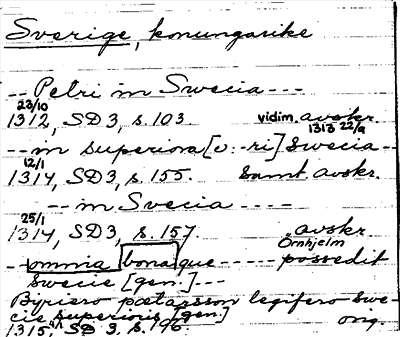 Sverige, konungarike
-- Petri in Swecia ---
23/10
1312, SD3, s. 103 vidim. avskr.
1313 22/9
-- in superiora [v: -ri] Swecia --
12/1
1314, SD3, s. 155. Samt. avskr.
-- in Swecia ----
25/1
1314, SD3, s. 157. avskr.
Örnhjelm
-- omnia bona que ----- possedit
Swecie [gen.] ---
Byriero pætarsson legifero Swe-
cie superioris [gen.]
1315, SD 3, s. 196. orig.